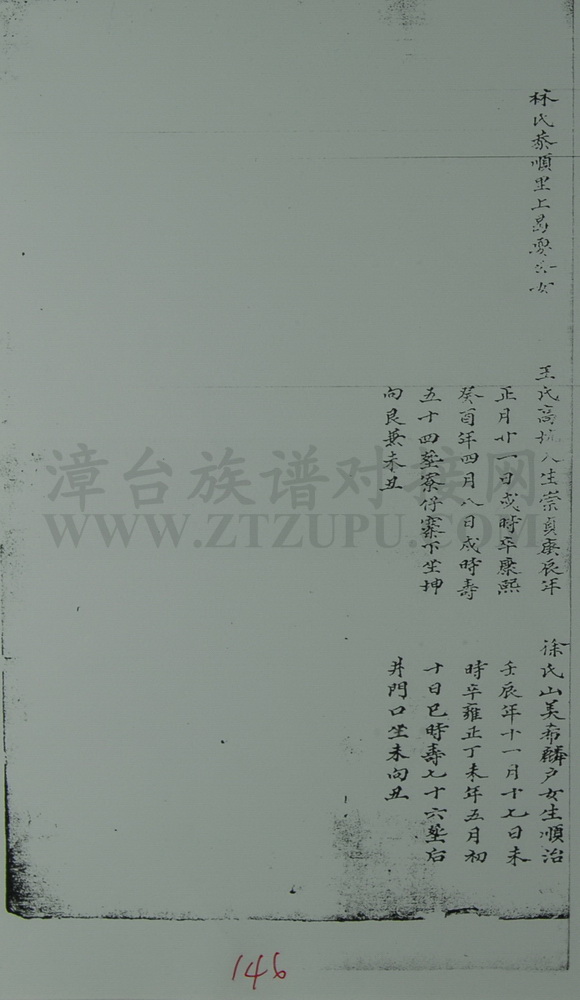 林氏泰順里上昌
女
王氏高坑人生崇貞庚辰年
正月廿一日戌時卒康熙
癸酉年四月八日戌時壽
五十四塟寮仔寨下坐坤
向艮兼未丑
徐氏山美希麟户女生順治
壬辰年十一月十七日未
時卒雍正丁未年五月初
十日巳時壽七十六塟后
井門口坐未向丑
漳台族谱对接网
WWW.ZTZUPU.COM
146